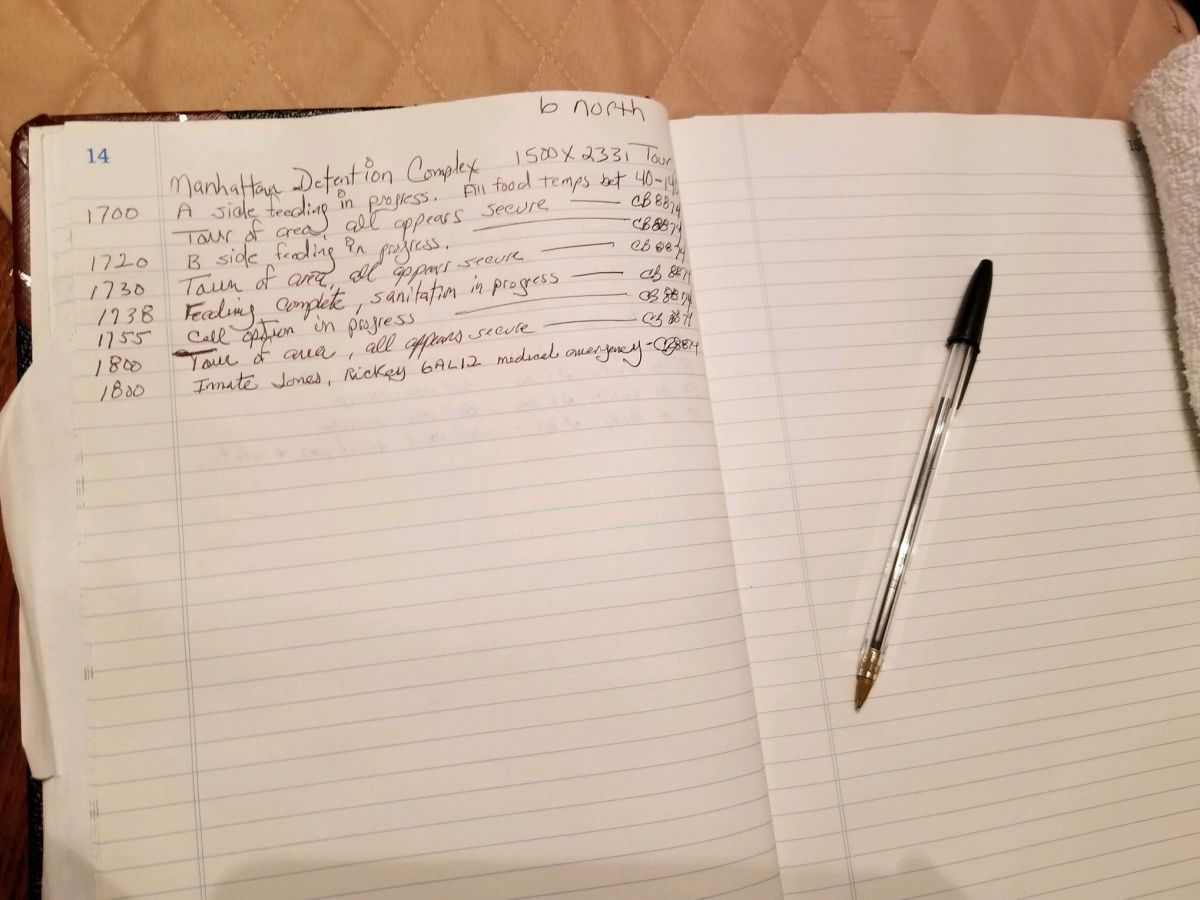 6 north
14
Manhattan Detention Complex 1500 X 2331 Tour
1700 A side feeding in progress. All food temps bet 40-140
Tour of area, all appears secure — CB 8874
1720 B side feeding in progress. — CB 8874
1730 Tour of area, all appears secure — CB 8874
1738 Feeding complete, sanitation in progress — CB 8874
1755 Cell option in progress — CB 8874
1800 Tour of area, all appears secure — CB 8874
1800 Inmate Jones, Rickey 6AL12 medical emergency - CB 8874